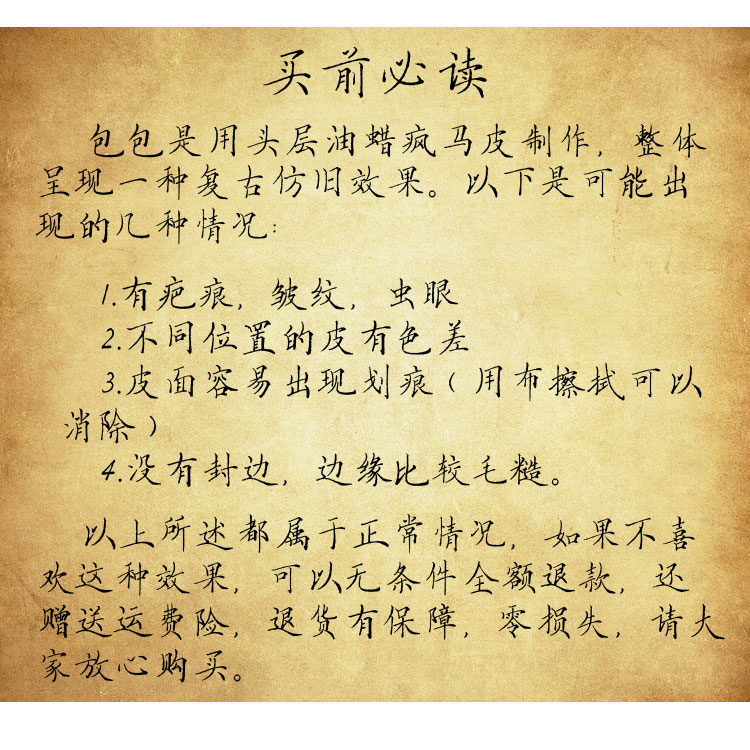 买前必读
包包是用头层油蜡疯马皮制作，整体
呈现一种复古仿旧效果。以下是可能出
现的几种情况：
1.有疤痕，皱纹，虫眼
2.不同位置的皮有色差
3.皮面容易出现划痕（用布擦拭可以
消除）
4.没有封边，边缘比较毛糙。
以上所述都属于正常情况，如果不喜
欢这种效果，可以无条件全额退款，还
赠送运费险，退货有保障，零损失，请大
家放心购买。